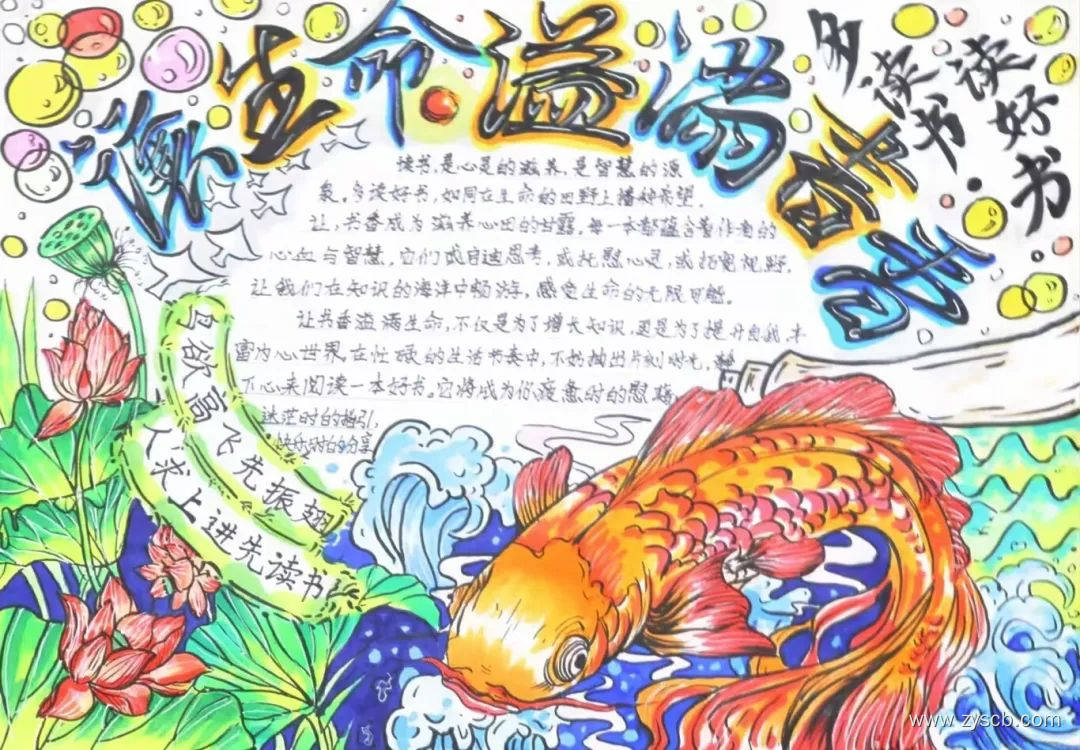 让生命溢满书香
多读书
读好书
读书,是心灵的滋养,是智慧的源
泉。多读好书,如同在生命的田野上播种希望。
让,书香成为滋养心田的甘露。每一本都蕴含着作者的
心血与智慧。它们或启迪思考,或抚慰心灵,或拓宽视野,
让我们在知识的海洋中畅游,感受生命的无限可能。
让书香溢满生命,不仅是为了增长知识,更是为了提升自我,丰
富内心世界。在忙碌的生活节奏中,不妨抽出片刻时光,静
下心来阅读一本好书。它将成为你疲惫时的慰藉
迷茫时的指引,
快乐时的分享
鸟欲高飞先振翅
人求上进先读书
www.zyscb.com